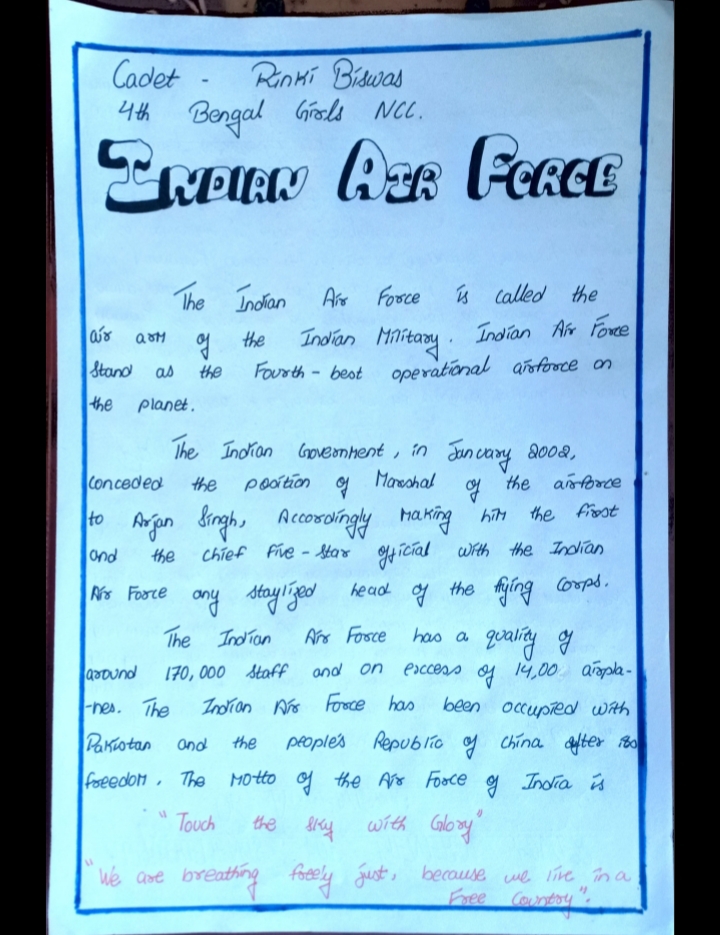 Cadet - Rinki Biswas
4th Bengal Girls NCC.
INDIAN AIR FORCE
The Indian Air Force is called the
air arm of the Indian Military. Indian Air Force
Stand as the Fourth-best operational airforce on
the planet.
The Indian Government, in January 2002,
conceded the position of Marshal of the airforce
to Arjan Singh, Accordingly making him the first
and the chief five-star official with the Indian
Air Force any staylized head of the flying corps.
The Indian Air Force has a quality of
around 170,000 staff and on excess of 14,00 airpla-
-nes. The Indian Air Force has been occupied with
Pakistan and the people's Republic of China after its
freedom. The Motto of the Air Force of India is
"Touch the sky with Glory"
"We are breathing freely just, because we live in a
Free Country".